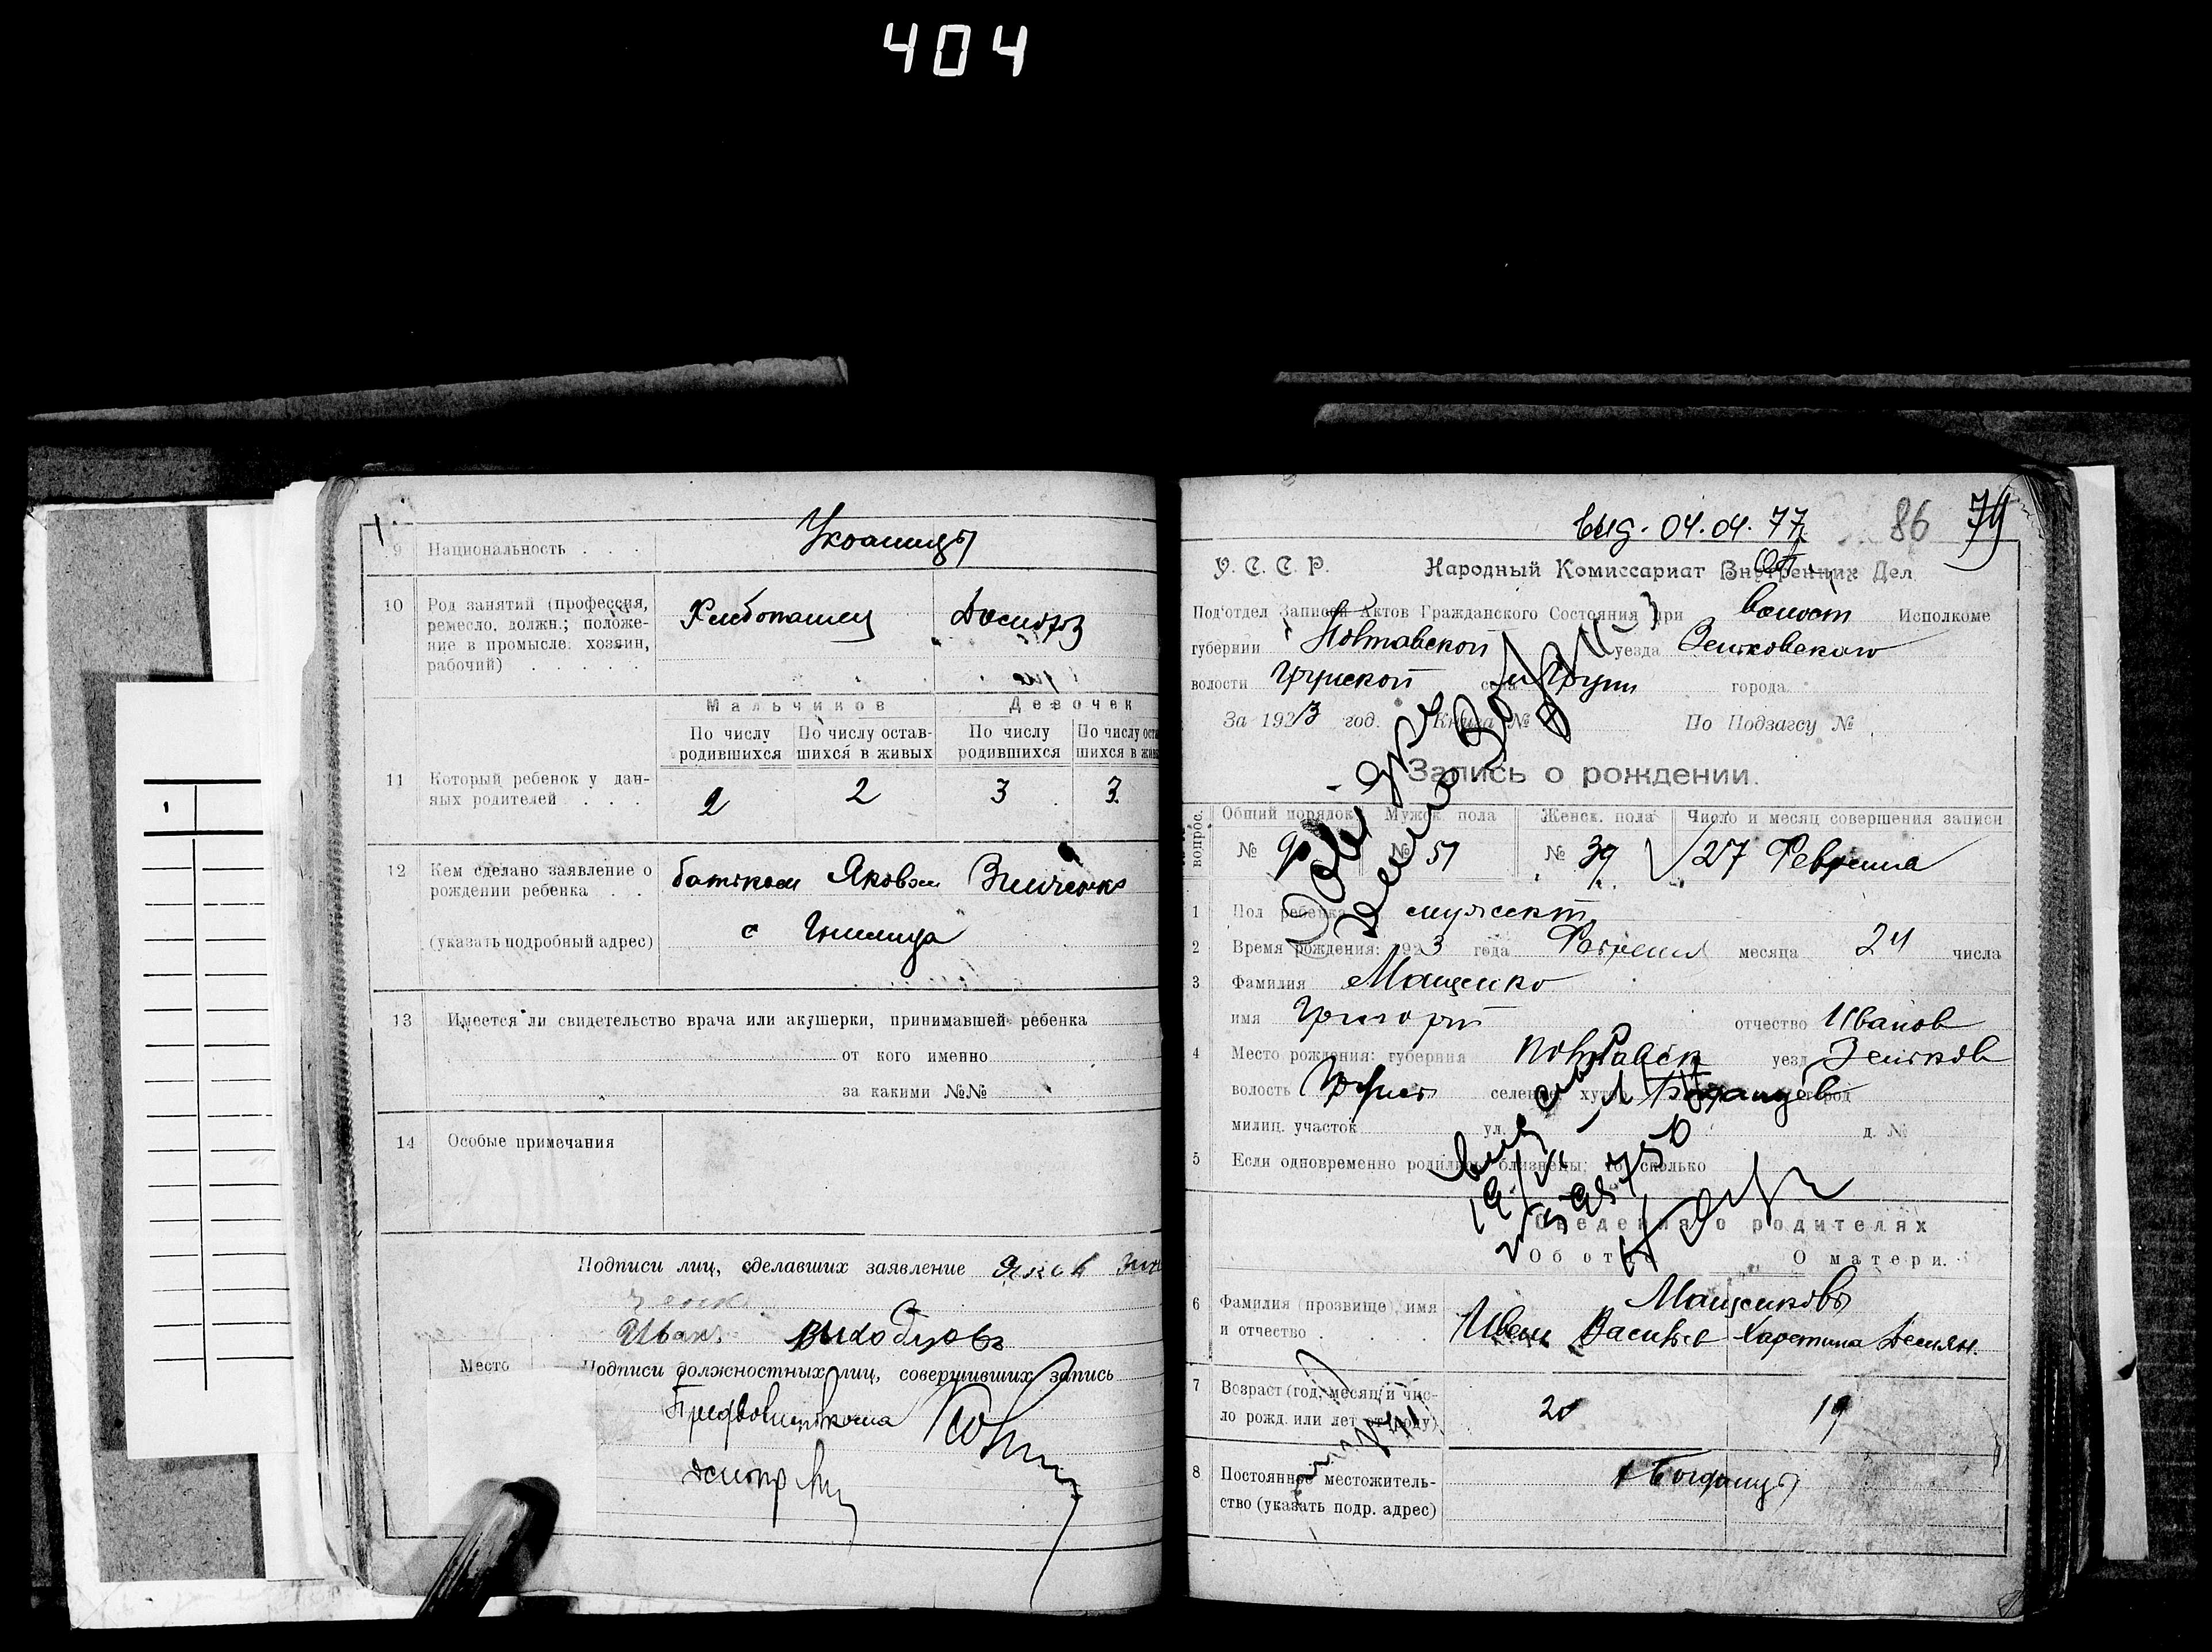 404
9 Национальность . . . Украинцы
10 Род занятий (профессия,
ремесло, должн.; положе-
ние в промысле: хозяин,
рабочий) . . . . .
Хлебопашец
Мальчиков Девочек
По числу родившихся
По числу остав-
шихся в живых
По числу родившихся
По числу
шихся в
11 Который ребенок у дан-
ных родителей . . .
2 2 3 3
12 Кем сделано заявление о
рождении ребенка . .
батьком Яковом Зинченко
(указать подробный адрес)
с Гнилица
13 Имеется ли свидетельство врача или акушерки, принимавшей ребенка
от кого именно
за какими №№
14 Особые примечания
Подписи лиц, сделавших заявление Яков Зин
ченко
Иван
Место
Подписи должностных лиц, совершивших запись
Предволисполкома
выд. 04.04.77 86 79
У. С. С. Р. Народный Комиссариат Внутренних Дел
Под'отдел Записей Актов Гражданского Состояния при Волост Исполкоме
губернии Полтавской уезда Зеньковского
волости Грунской села Грунь города
За 1923 год. Книга № По Подзагсу №
Запись о рождении.
вопрос.
Общий порядок Мужск. пола Женск. пола Число и месяц совершения записи
№ 90 № 51 № 39 27 Февраля
1 Пол ребенка мужск
2 Время рождения: 1923 года Февраля месяца 24 числа
3 Фамилия Мащенко
имя Григорий отчество Иванов
4 Место рождения: губерния Полтавск уезд Зеньков
волость Грунск селение хутор город
милиц. участок ул. д. №
5 Если одновременно родились близнецы, то сколько
Сведения о родителях
Об отце О матери.
6 Фамилия (прозвище), имя
и отчество .
Мащенковы
Иван Васильев Харетина Демьян.
7 Возраст (год, месяц и чис-
ло рожд. или лет от роду)
20 19
8 Постоянное местожитель-
ство (указать подр. адрес)